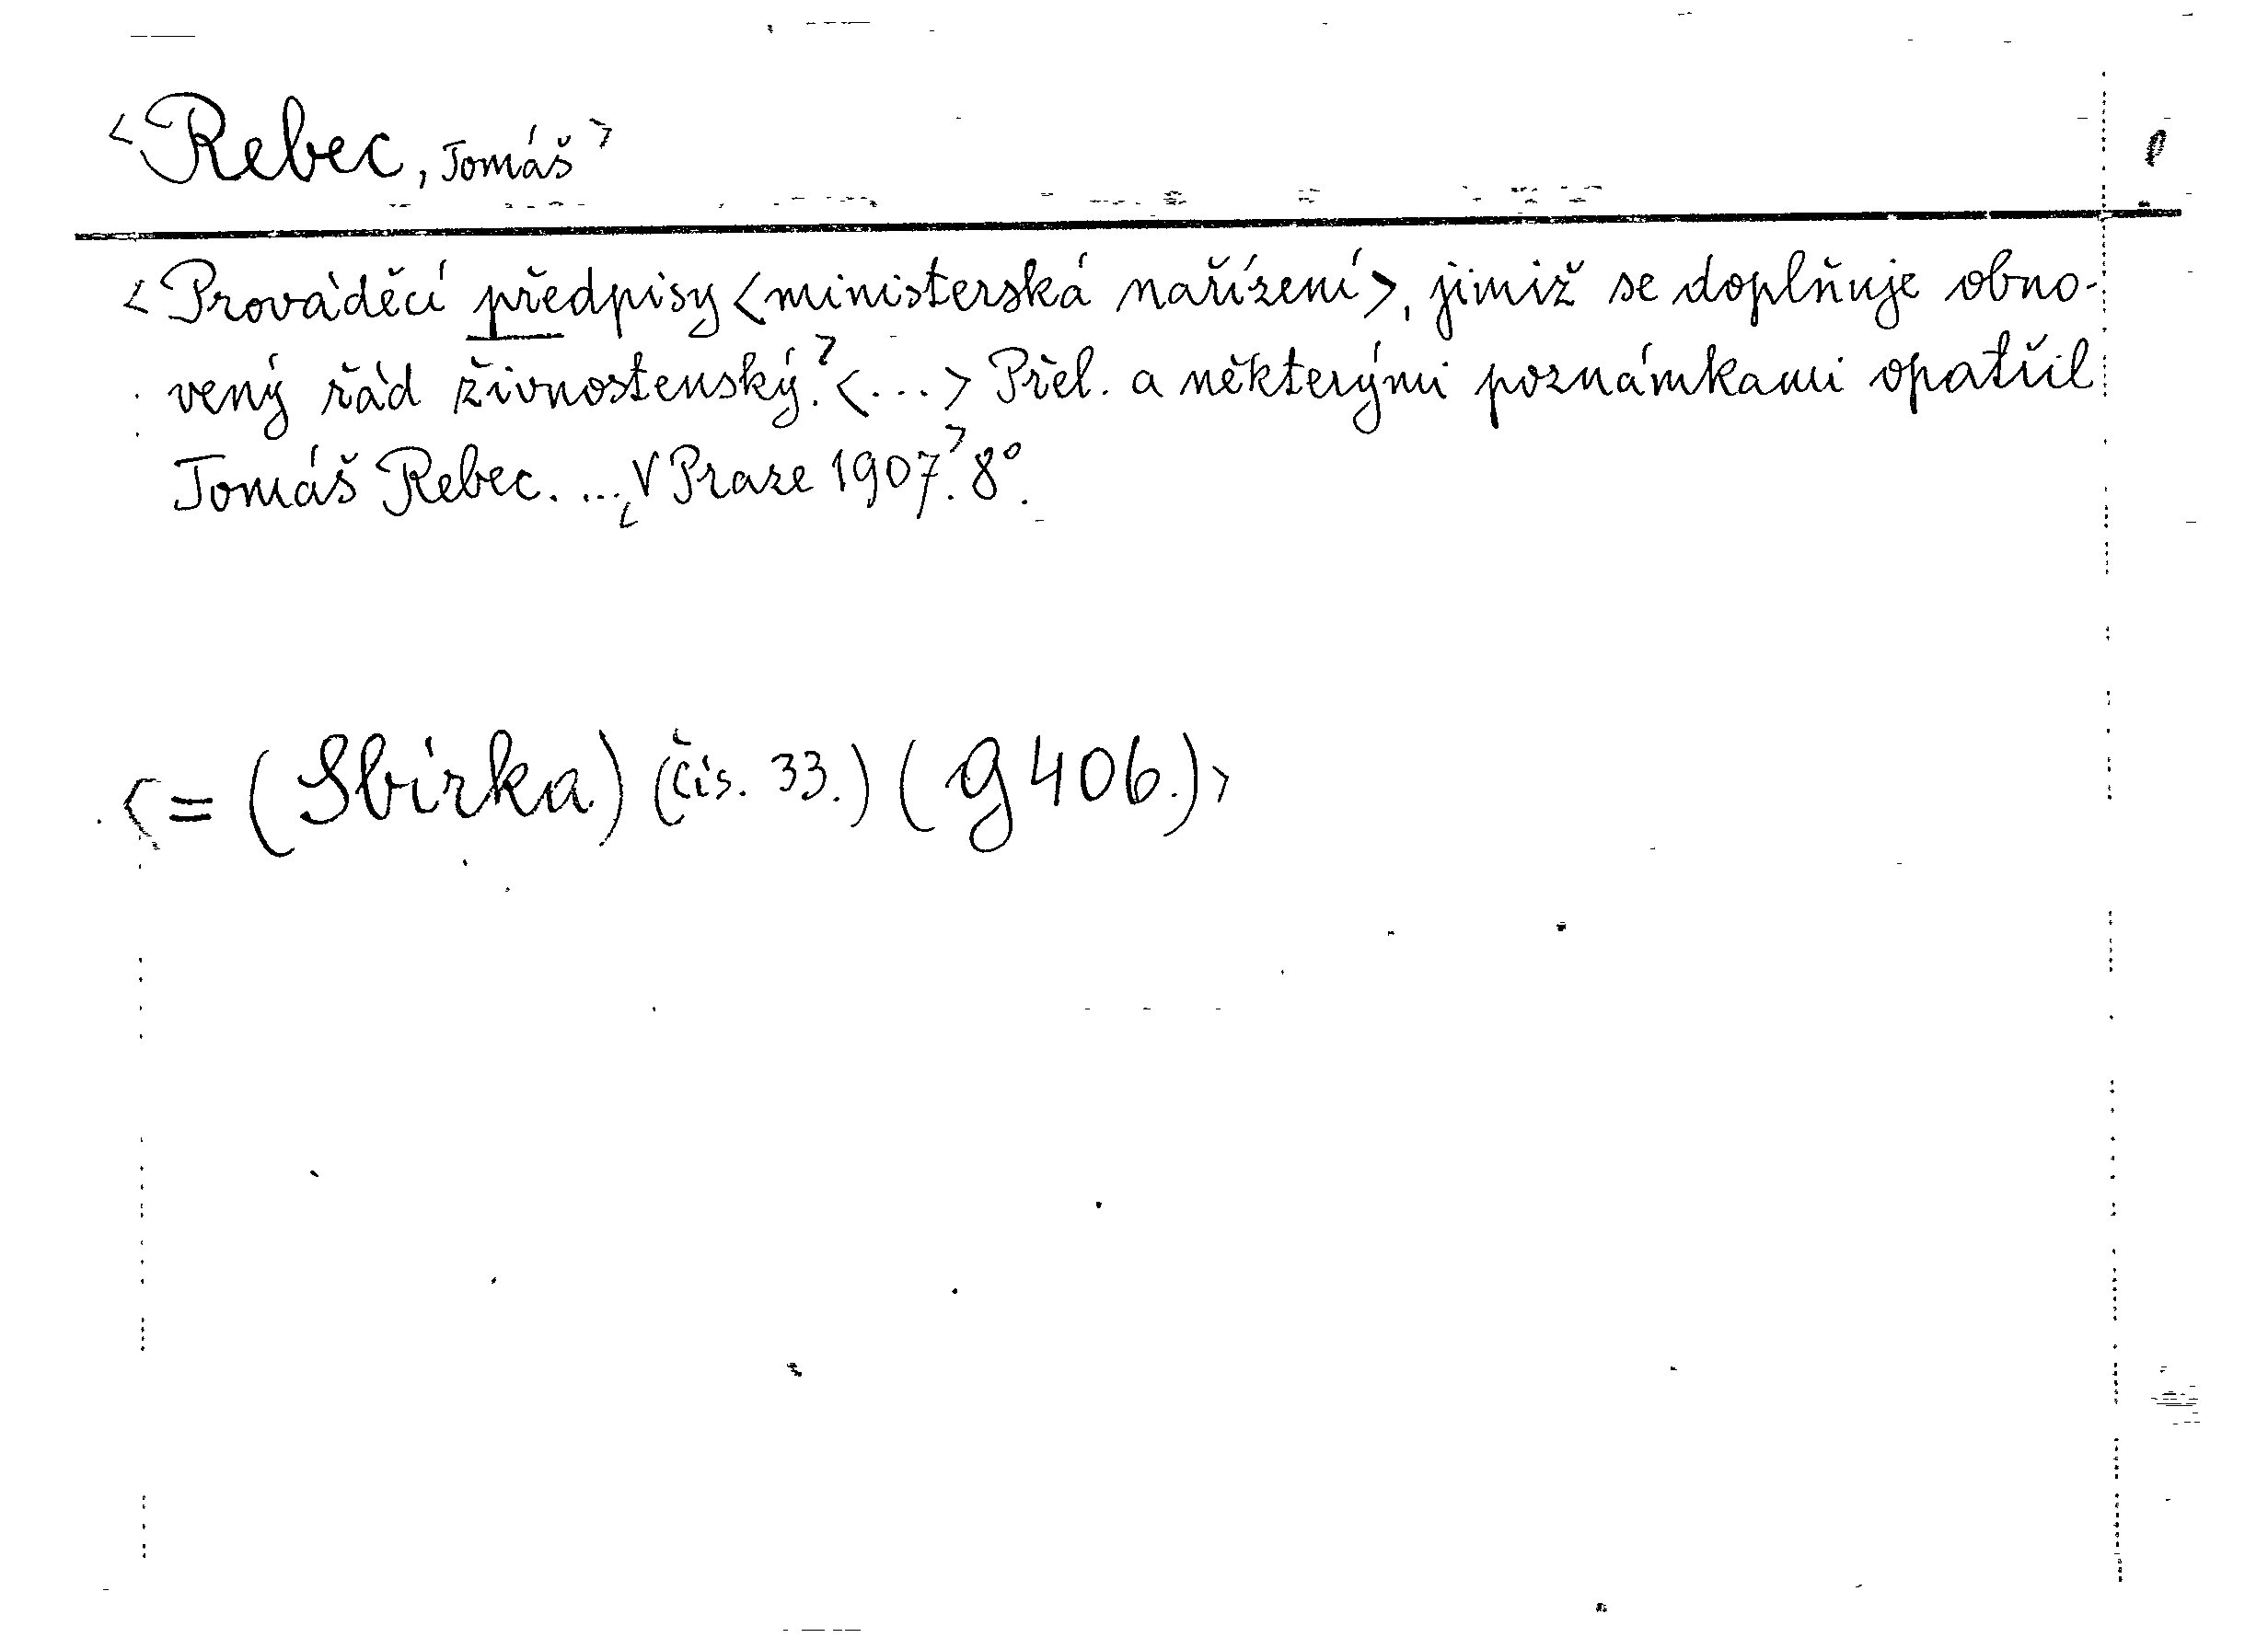 <Rebec, Tomáš>
<Prováděcí předpisy <ministerská nařízení>, jimiž se doplňuje obno-
vený řád živnostenský.> <...> Přel. a některými poznámkami opatřil
Tomáš Rebec. ... <V Praze 1907.> 8°.
<= (Sbírka) (čís. 33.) (g 406.)>